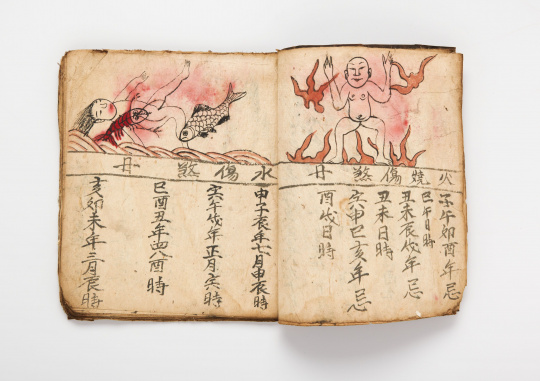 火燒傷煞
子午卯酉年忌
巳午日時
丑未辰戌年忌
丑未日時
寅申巳亥年忌
酉戌日時
水傷煞
申子辰年七月申辰時
寅午戌年正月亥時
巳酉丑年四八酉時
亥卯未年三月辰時